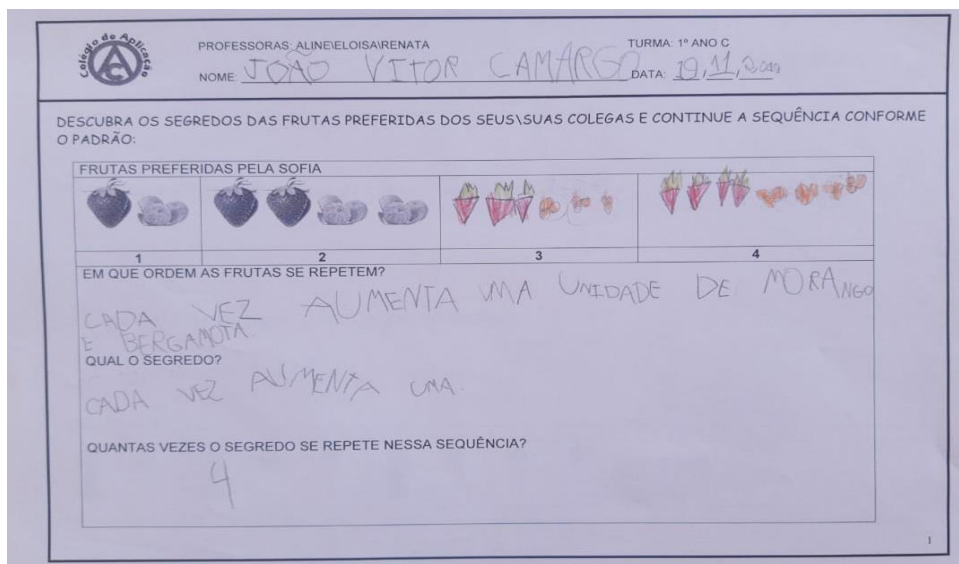 Colégio de Aplicação
AC
PROFESSORAS: ALINE\ELOISA\RENATA TURMA: 1º ANO C
NOME: JOÃO VITOR CAMARGO DATA: 19,11,2019
DESCUBRA OS SEGREDOS DAS FRUTAS PREFERIDAS DOS SEUS\SUAS COLEGAS E CONTINUE A SEQUÊNCIA CONFORME
O PADRÃO:
FRUTAS PREFERIDAS PELA SOFIA
1 2 3 4
EM QUE ORDEM AS FRUTAS SE REPETEM?
CADA VEZ AUMENTA UMA UNIDADE DE MORANGO
E BERGAMOTA.
QUAL O SEGREDO?
CADA VEZ AUMENTA UMA.
QUANTAS VEZES O SEGREDO SE REPETE NESSA SEQUÊNCIA?
4
1